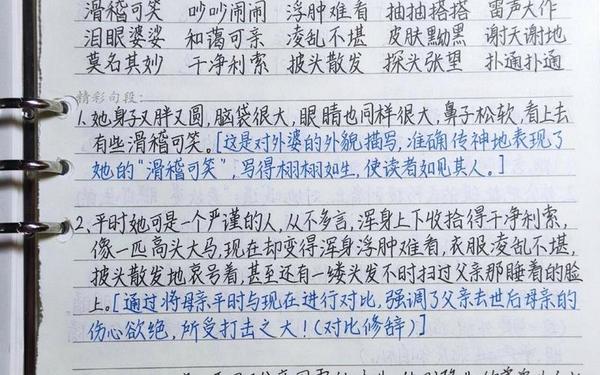 滑稽可笑 吵吵闹闹 浮肿难看 抽抽搭搭 雷声大作
泪眼婆娑 和蔼可亲 凌乱不堪 皮肤黝黑 谢天谢地
莫名其妙 干净利索 披头散发 探头张望 扑通扑通
精彩句段:
1.她身子又胖又圆,脑袋很大,眼睛也同样很大,鼻子松软,看上去
有些滑稽可笑。[这是对外婆的外貌描写,准确传神地表现了
她的“滑稽可笑”,写得栩栩如生,使读者如见其人。]
2.平时她可是一个严谨的人,从不多言,浑身上下收拾得干净利索,
像一匹高头大马,现在却变得浑身浮肿难看,衣服凌乱不堪,
披头散发地哀号着,甚至还有一缕头发不时扫过父亲那睡着的脸
上。[通过将母亲平时与现在进行对比,强调了父亲去世后母亲的
伤心欲绝,所受打击之大!(对比修辞)]